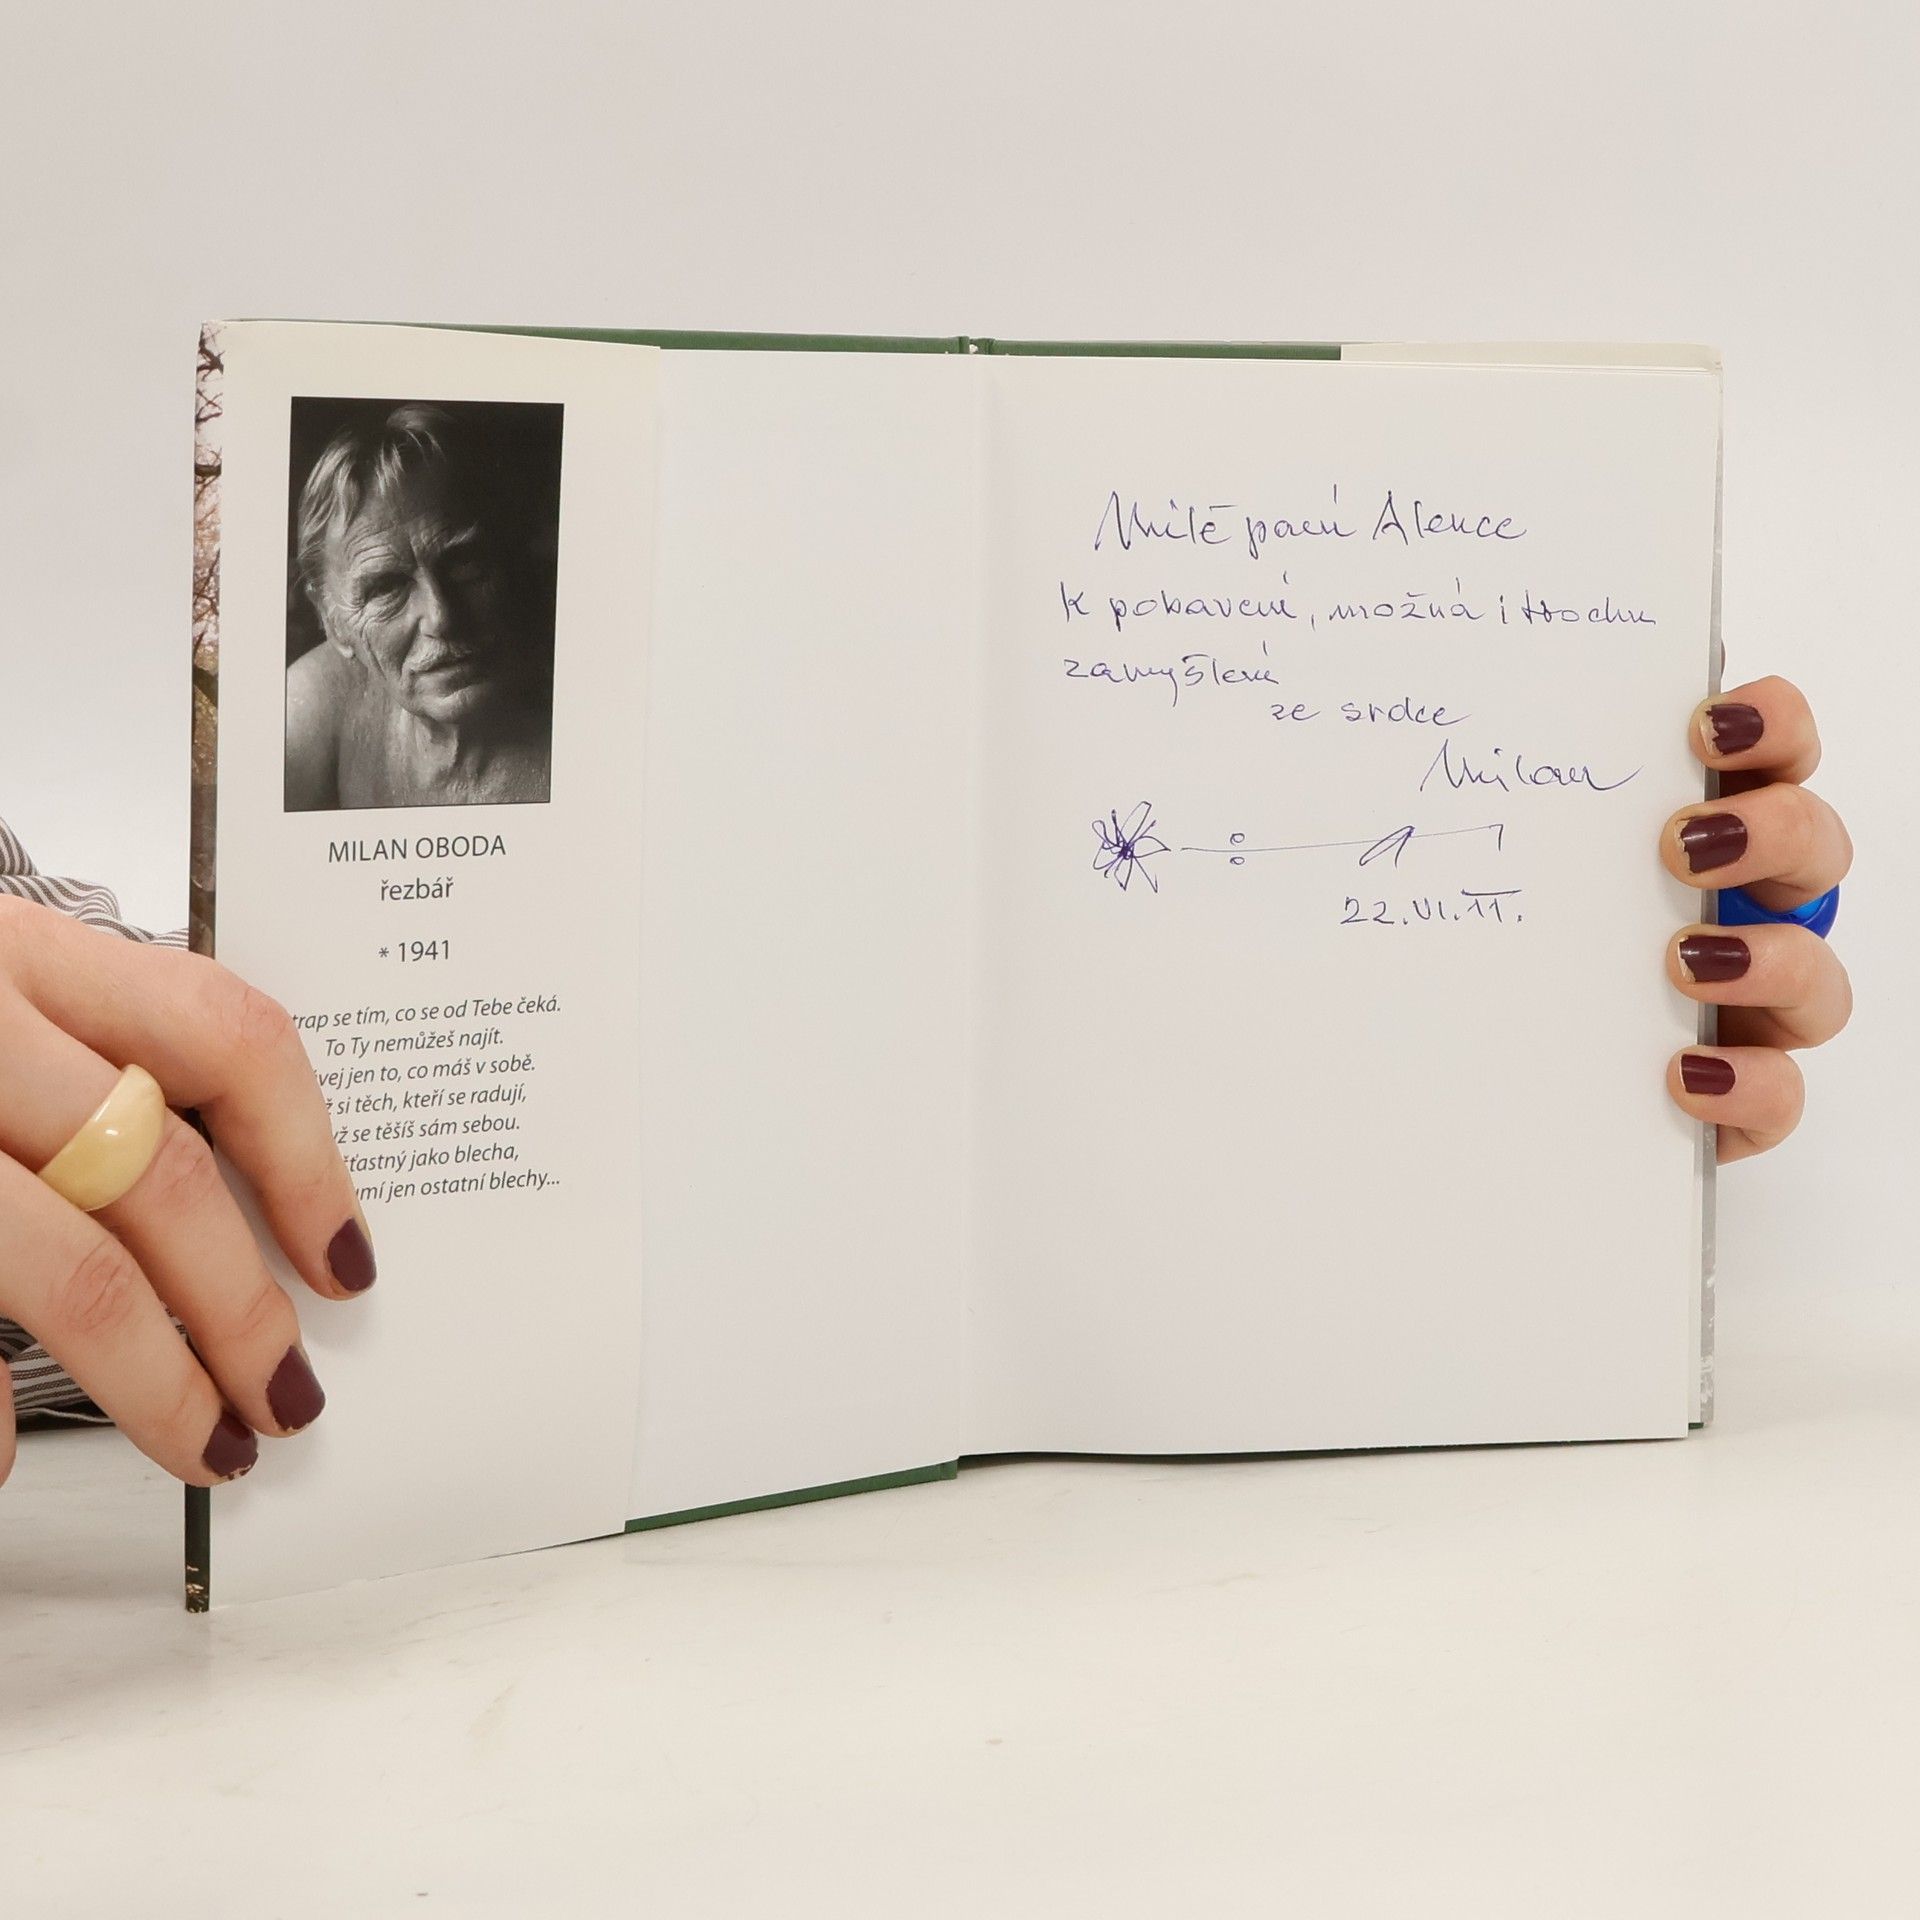 MILAN OBODA
řezbář
* 1941
trap se tím, co se od Tebe čeká.
To Ty nemůžeš najít.
vej jen to, co máš v sobě.
ž si těch, kteří se radují,
yž se těšíš sám sebou.
šťastný jako blecha,
umí jen ostatní blechy...
Milé paní Alence
K pobavení, možná i trochu
zamyšlení
ze srdce
Milan
22.VI.11.